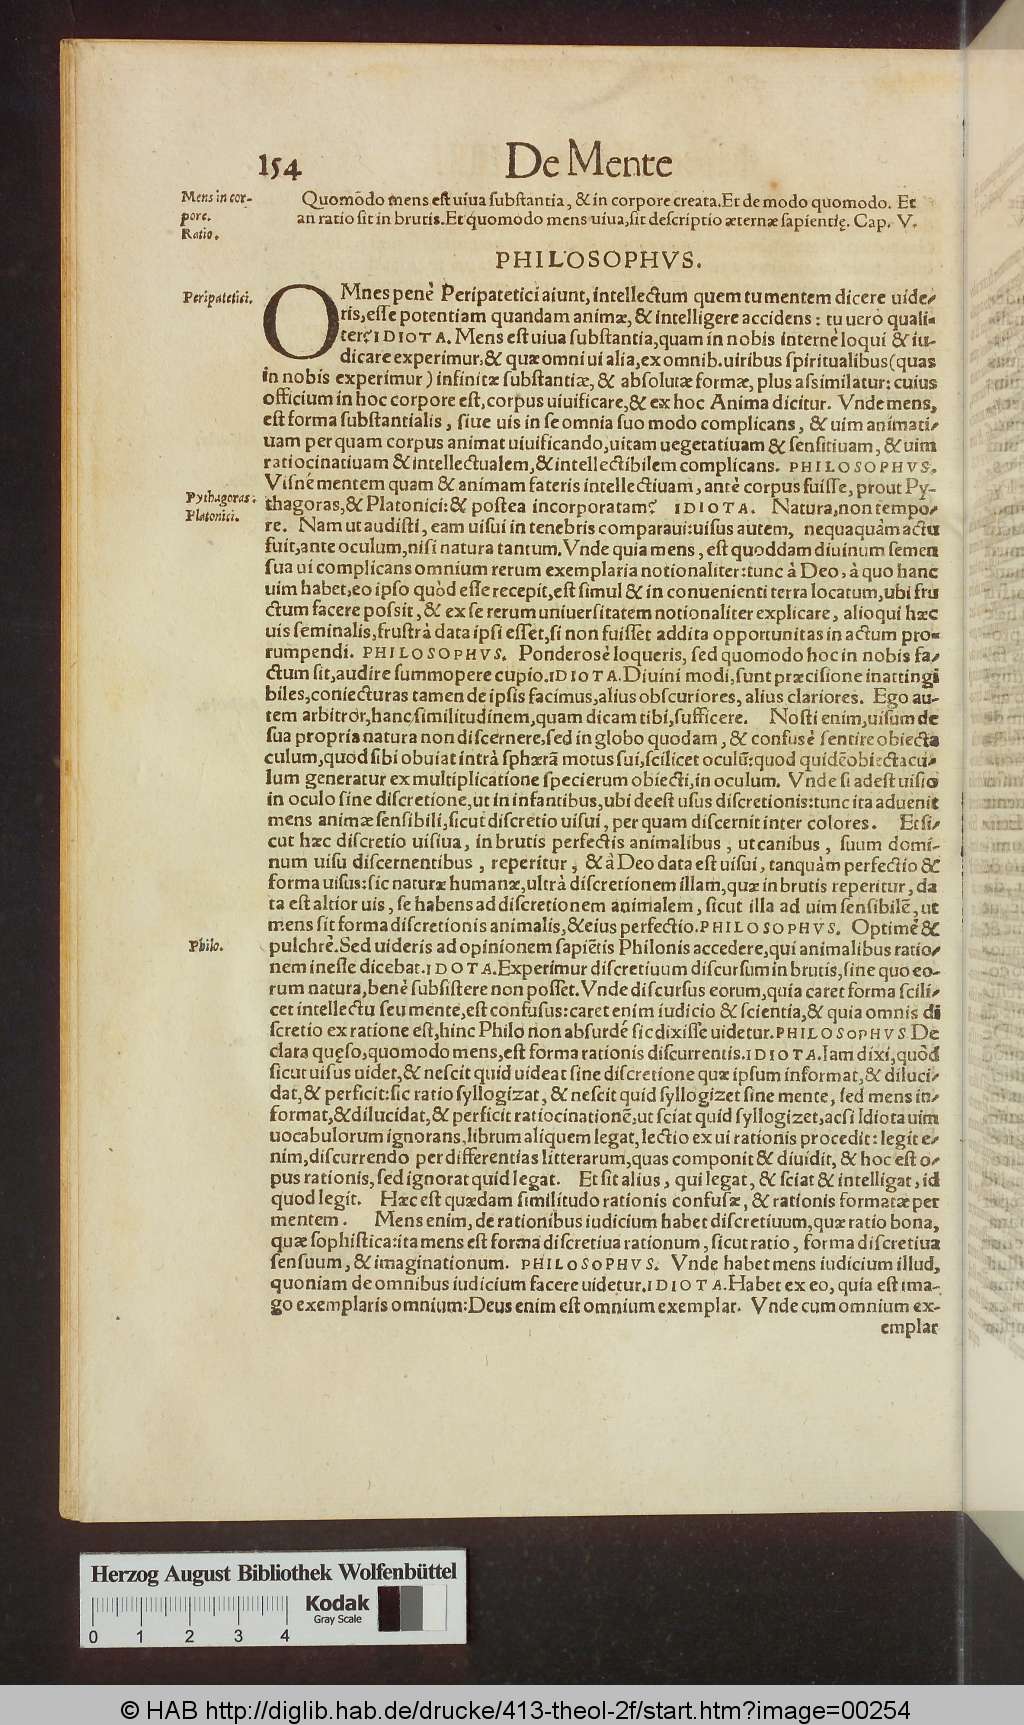 154 De Mente
Mens in cor-
pore.
Ratio.
Quomõdo mens est uiua substantia, & in corpore creata. Et de modo quomodo. Et
an ratio sit in brutis. Et quomodo mens uiua, sit descriptio æternæ sapientię. Cap. V.
PHILOSOPHVS.
Peripatetici.
OMnes penè Peripatetici aiunt, intellectum quem tu mentem dicere uide-
ris, esse potentiam quandam animæ, & intelligere accidens: tu uero quali-
ter? IDIOTA. Mens est uiua substantia, quam in nobis internè loqui & iu-
dicare experimur, & quæ omni ui alia, ex omnib. uiribus spiritualibus (quas
in nobis experimur) infinitæ substantiæ, & absolutæ formæ, plus assimilatur: cuius
officium in hoc corpore est, corpus uiuificare, & ex hoc Anima dicitur. Vnde mens,
est forma substantialis, siue uis in se omnia suo modo complicans, & uim animati-
uam per quam corpus animat uiuificando, uitam uegetatiuam & sensitiuam, & uim
ratiocinatiuam & intellectualem, & intellectibilem complicans. PHILOSOPHVS.
Visnè mentem quam & animam fateris intellectiuam, antè corpus fuisse, prout Py-
Pythagoras.
Platonici.
thagoras, & Platonici: & postea incorporatam? IDIOTA. Natura, non tempo-
re. Nam ut audisti, eam uisui in tenebris comparaui: uisus autem, nequaquàm actu
fuit, ante oculum, nisi natura tantum. Vnde quia mens, est quoddam diuinum semen
sua ui complicans omnium rerum exemplaria notionaliter: tunc à Deo, à quo hanc
uim habet, eo ipso quòd esse recepit, est simul & in conuenienti terra locatum, ubi fru
ctum facere possit, & ex se rerum uniuersitatem notionaliter explicare, alioqui hæc
uis seminalis, frustrà data ipsi esset, si non fuisset addita opportunitas in actum pro-
rumpendi. PHILOSOPHVS. Ponderosè loqueris, sed quomodo hoc in nobis fa-
ctum sit, audire summopere cupio. IDIOTA. Diuini modi, sunt præcisione inattingi
biles, coniecturas tamen de ipsis facimus, alius obscuriores, alius clariores. Ego au-
tem arbitror, hanc similitudinem, quam dicam tibi, sufficere. Nosti enim, uisum de
sua propria natura non discernere, sed in globo quodam, & confusè sentire obiecta
culum, quod sibi obuiat intrà sphærã motus sui, scilicet oculũ: quod quidẽ obiectacu-
lum generatur ex multiplicatione specierum obiecti, in oculum. Vnde si adest uisio
in oculo sine discretione, ut in infantibus, ubi deest usus discretionis: tunc ita aduenit
mens animæ sensibili, sicut discretio uisui, per quam discernit inter colores. Et si-
cut hæc discretio uisiua, in brutis perfectis animalibus, ut canibus, suum domi-
num uisu discernentibus, reperitur, & à Deo data est uisui, tanquàm perfectio &
forma uisus: sic naturæ humanæ, ultrà discretionem illam, quæ in brutis reperitur, da
ta est altior uis, se habens ad discretionem animalem, sicut illa ad uim sensibilẽ, ut
mens sit forma discretionis animalis, & eius perfectio. PHILOSOPHVS. Optimè &
Philo.
pulchrè. Sed uideris ad opinionem sapiẽtis Philonis accedere, qui animalibus ratio-
nem inesse dicebat. IDOTA. Experimur discretiuum discursum in brutis, sine quo eo-
rum natura, benè subsistere non posset. Vnde discursus eorum, quia caret forma scili-
cet intellectu seu mente, est confusus: caret enim iudicio & scientia, & quia omnis di
scretio ex ratione est, hinc Philo non absurdé sic dixisse uidetur. PHILOSOPHVS De
clara quęso, quomodo mens, est forma rationis discurrentis. IDIOTA. Iam dixi, quòd
sicut uisus uidet, & nescit quid uideat sine discretione quæ ipsum informat, & diluci-
dat, & perficit: sic ratio syllogizat, & nescit quid syllogizet sine mente, sed mens in-
format, & dilucidat, & perficit ratiocinationẽ, ut sciat quid syllogizet, ac si Idiota uim
uocabulorum ignorans, librum aliquem legat, lectio ex ui rationis procedit: legit e-
nim, discurrendo per differentias litterarum, quas componit & diuidit, & hoc est o-
pus rationis, sed ignorat quid legat. Et sit alius, qui legat, & sciat & intelligat, id
quod legit. Hæc est quædam similitudo rationis confusæ, & rationis formatæ per
mentem. Mens enim, de rationibus iudicium habet discretiuum, quæ ratio bona,
quæ sophistica: ita mens est forma discretiua rationum, sicut ratio, forma discretiua
sensuum, & imaginationum. PHILOSOPHVS. Vnde habet mens iudicium illud,
quoniam de omnibus iudicium facere uidetur. IDIOTA. Habet ex eo, quia est ima-
go exemplaris omnium: Deus enim est omnium exemplar. Vnde cum omnium ex-
emplar
Herzog August Bibliothek Wolfenbüttel
Kodak
Gray Scale
0 1 2 3 4
© HAB http://diglib.hab.de/drucke/413-theol-2f/start.htm?image=00254